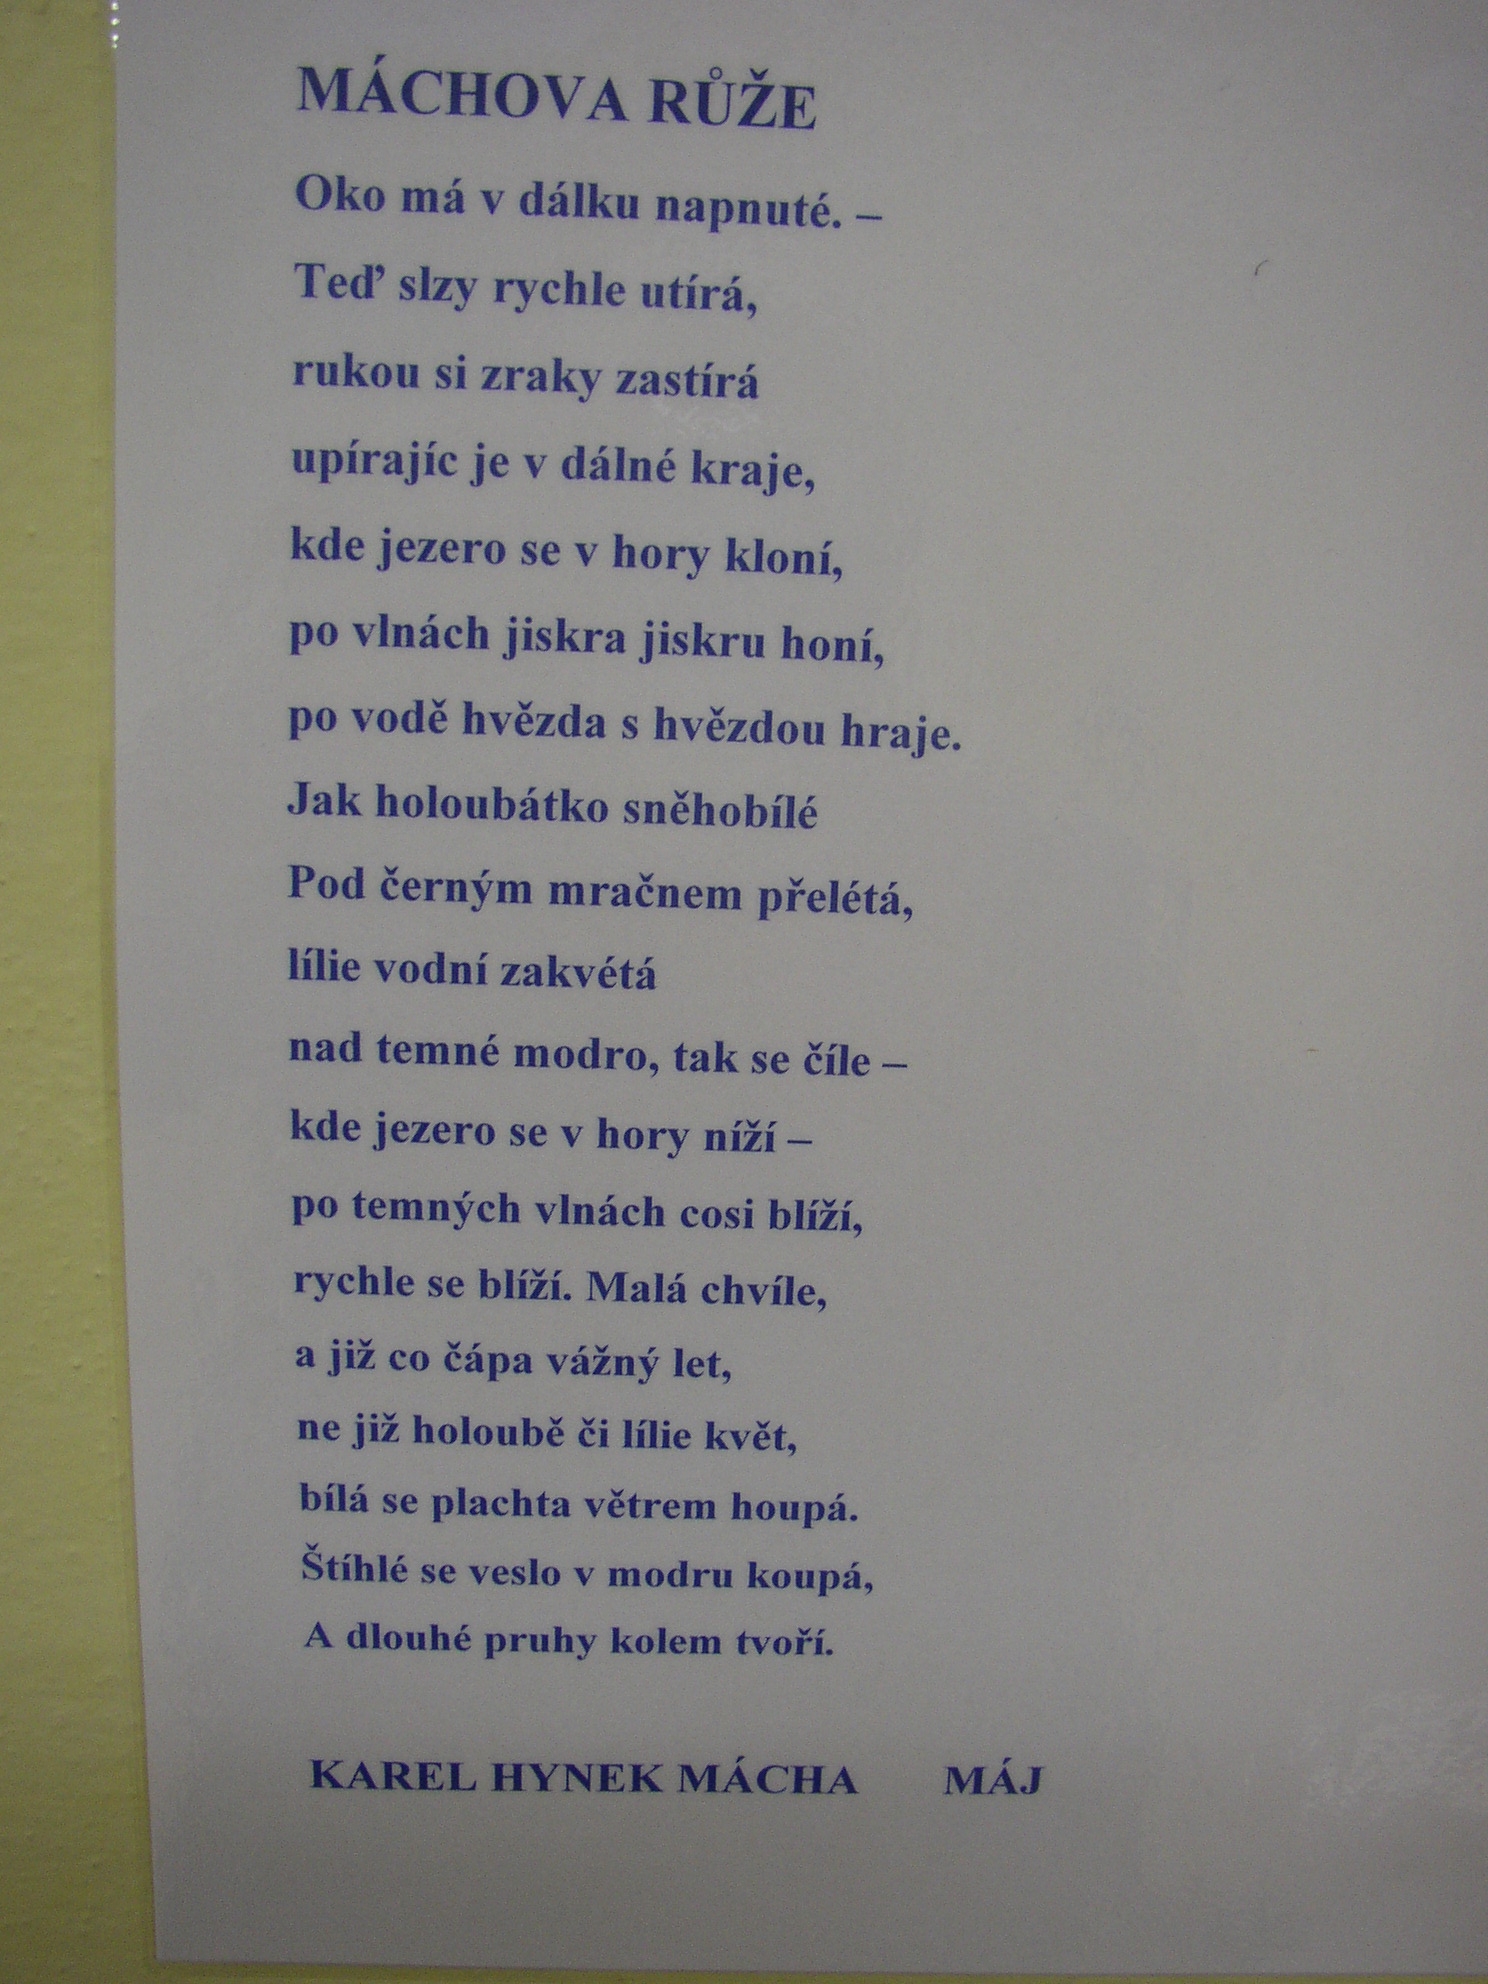 MÁCHOVA RŮŽE
Oko má v dálku napnuté. –
Teď slzy rychle utírá,
rukou si zraky zastírá
upírajíc je v dálné kraje,
kde jezero se v hory kloní,
po vlnách jiskra jiskru honí,
po vodě hvězda s hvězdou hraje.
Jak holoubátko sněhobílé
Pod černým mračnem přelétá,
lílie vodní zakvétá
nad temné modro, tak se číle –
kde jezero se v hory níží –
po temných vlnách cosi blíží,
rychle se blíží. Malá chvíle,
a již co čápa vážný let,
ne již holoubě či lílie květ,
bílá se plachta větrem houpá.
Štíhlé se veslo v modru koupá,
A dlouhé pruhy kolem tvoří.
KAREL HYNEK MÁCHA MÁJ